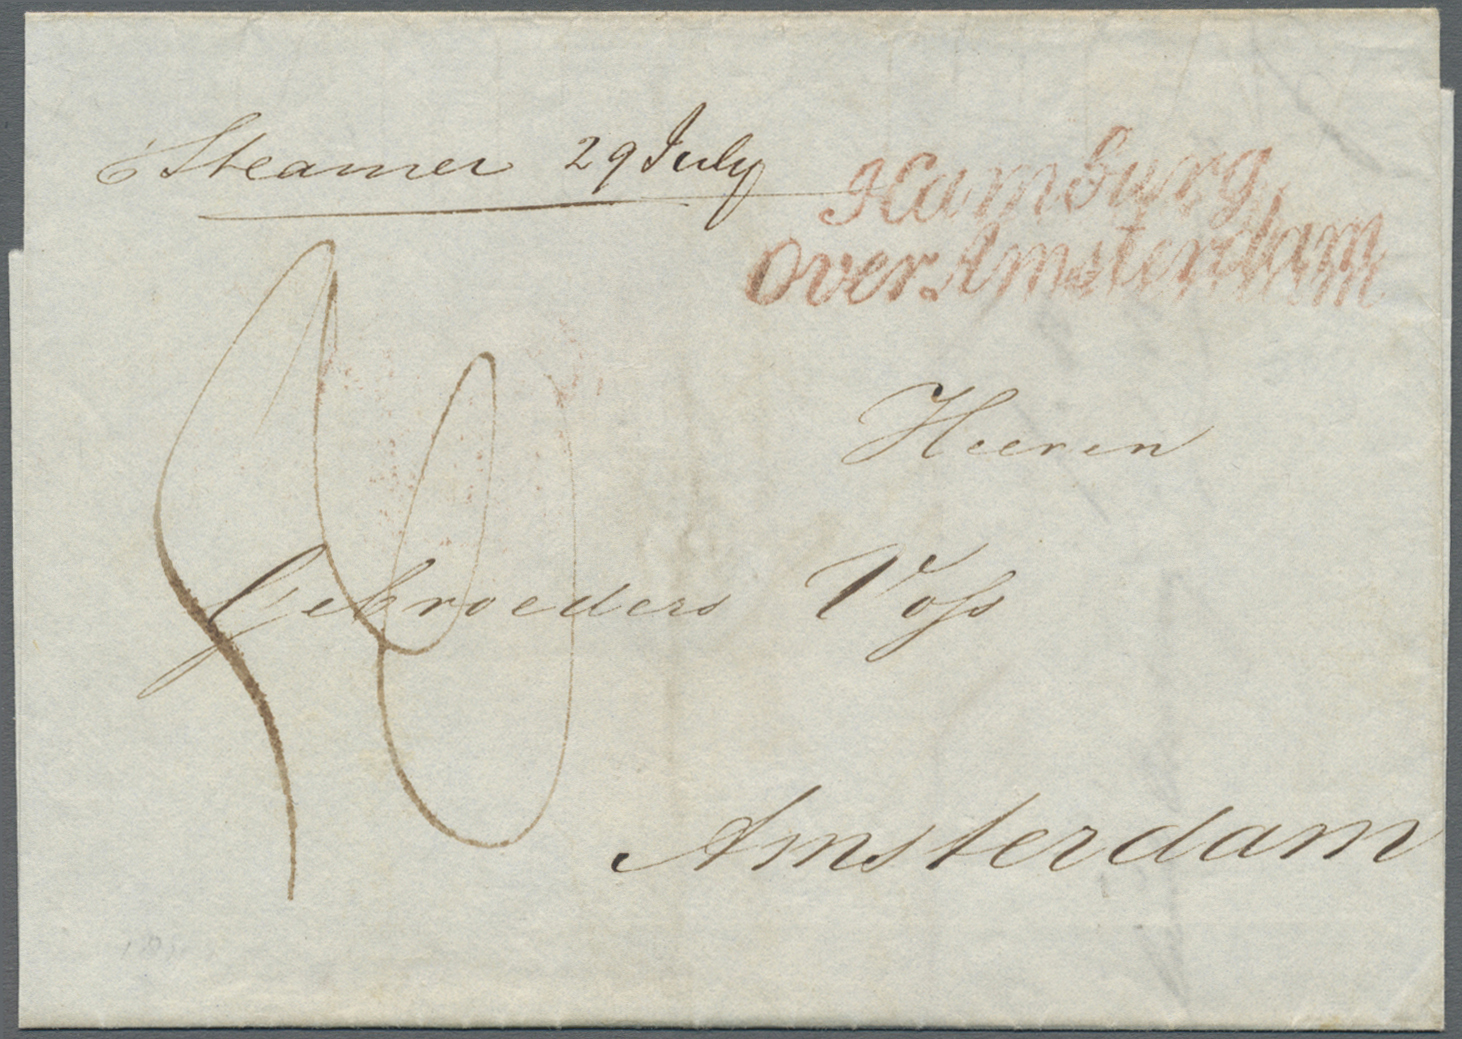 Steamer 29 July
Hamburg
over Amsterdam
Heeren
Gebroeders Voſs
Amsterdam